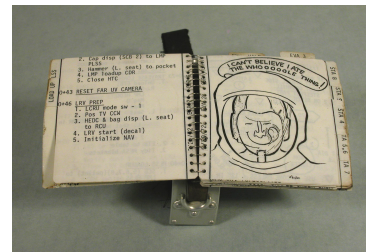 2. Cap disp (SCB 2) to LMP
PLSS
3. Hammer (L. seat) to pocket
4. LMP loadup CDR
5. Close HTC
0+43 RESET FAR UV CAMERA
0+46 LRV PREP
1. LCRU mode sw - 1
2. Pos TV CCW
3. HEDC & bag disp (L. seat)
to RCU
4. LRV start (decal)
5. Initialize NAV
LOAD UP LS1
I CAN'T BELIEVE I ATE
THE WHOOOOOLE THING!
STA 4
STA 5,6
STA 7